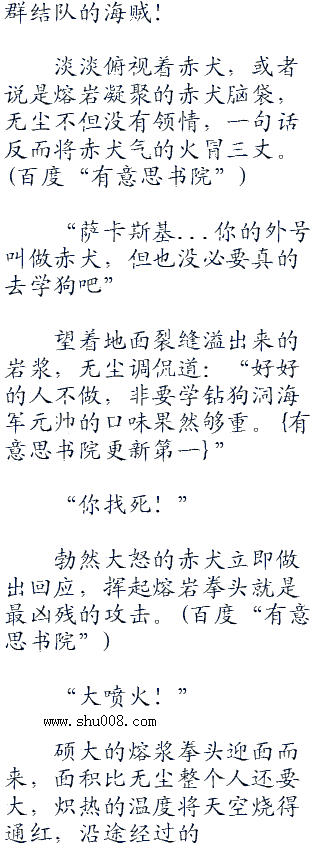 群结队的海贼！
淡淡俯视着赤犬，或者
说是熔岩凝聚的赤犬脑袋，
无尘不但没有领情，一句话
反而将赤犬气的火冒三丈。
(百度“有意思书院”)
“萨卡斯基...你的外号
叫做赤犬，但也没必要真的
去学狗吧”
望着地面裂缝溢出来的
岩浆，无尘调侃道：“好好
的人不做，非要学钻狗洞海
军元帅的口味果然够重。{有
意思书院更新第一}”
“你找死！”
勃然大怒的赤犬立即做
出回应，挥起熔岩拳头就是
最凶残的攻击。(百度“有意
思书院”)
“大喷火！”
www.shu008.com
硕大的熔浆拳头迎面而
来，面积比无尘整个人还要
大，炽热的温度将天空烧得
通红，沿途经过的